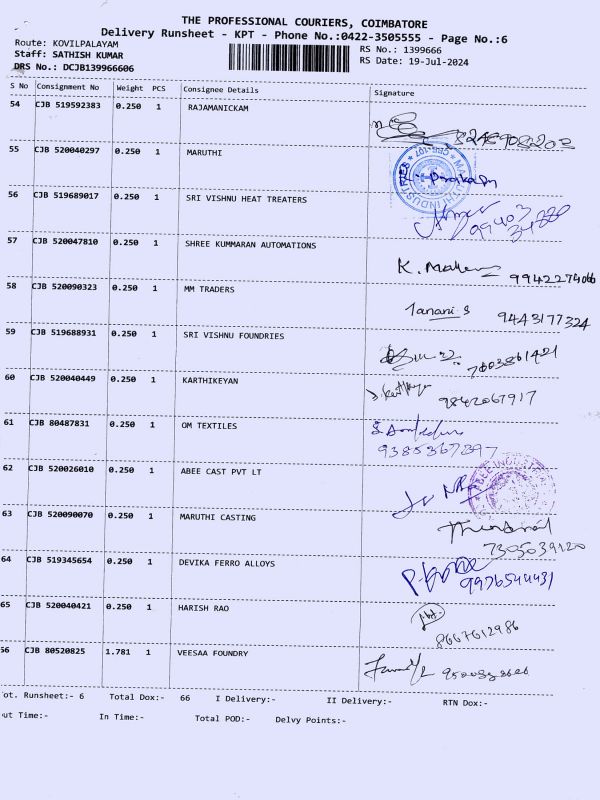 THE PROFESSIONAL COURIERS, COIMBATORE
Delivery Runsheet - KPT - Phone No.:0422-3505555 - Page No.:6
Route: KOVILPALAYAM
RS No.: 1399666
Staff: SATHISH KUMAR
RS Date: 19-Jul-2024
DRS No.: DCJB139966606
S No Consignment No Weight PCS Consignee Details Signature
54 CJB 519592383 0.250 1 RAJAMANICKAM
55 CJB 520040297 0.250 1 MARUTHI
56 CJB 519689017 0.250 1 SRI VISHNU HEAT TREATERS
57 CJB 520047810 0.250 1 SHREE KUMMARAN AUTOMATIONS
9942274066
58 CJB 520090323 0.250 1 MM TRADERS
Janani S 9443177324
59 CJB 519688931 0.250 1 SRI VISHNU FOUNDRIES
7603861421
60 CJB 520040449 0.250 1 KARTHIKEYAN
9842067917
61 CJB 80487831 0.250 1 OM TEXTILES
9385367297
62 CJB 520026010 0.250 1 ABEE CAST PVT LT
63 CJB 520090070 0.250 1 MARUTHI CASTING
7305039120
64 CJB 519345654 0.250 1 DEVIKA FERRO ALLOYS
9976544431
65 CJB 520040421 0.250 1 HARISH RAO
8667612986
66 CJB 80520825 1.781 1 VEESAA FOUNDRY
ot. Runsheet:- 6 Total Dox:- 66 I Delivery:- II Delivery:- RTN Dox:-
ut Time:- In Time:- Total POD:- Delvy Points:-